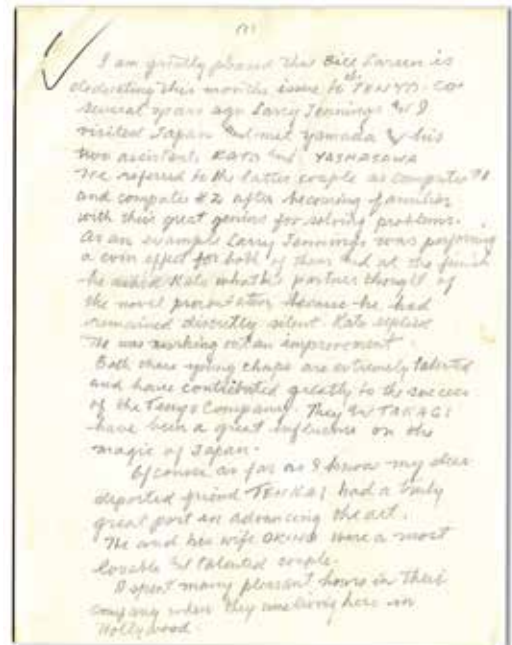 (1)
I am greatly pleased that Bill Larsen is
dedicating this months issue to the TENYO. CO.
Several years ago Larry Jennings and I
visited Japan and met Yamada & his
two assistants KATO and YASHASAWA
We referred to the latter couple as computer #1
and computer #2 after becoming familiar
with their great genius for solving problems.
As an example Larry Jennings was performing
a coin effect for both of them and at the finish
he asked Kato what his partner thought of
the novel presentation because he had
remained discretly silent. Kato replied
He was working out an improvement.
Both these young chaps are extremely talented
and have contributed greatly to the success
of the Tenyo Company. They and TAKAGI
have been a great influence on the
magic of Japan.
Of course as far as I know my dear
departed friend TENKAI had a truly
great part in advancing the art.
He and his wife OKINU were a most
lovable and talented couple.
I spent many pleasant hours in their
company when they were living here in
Hollywood.